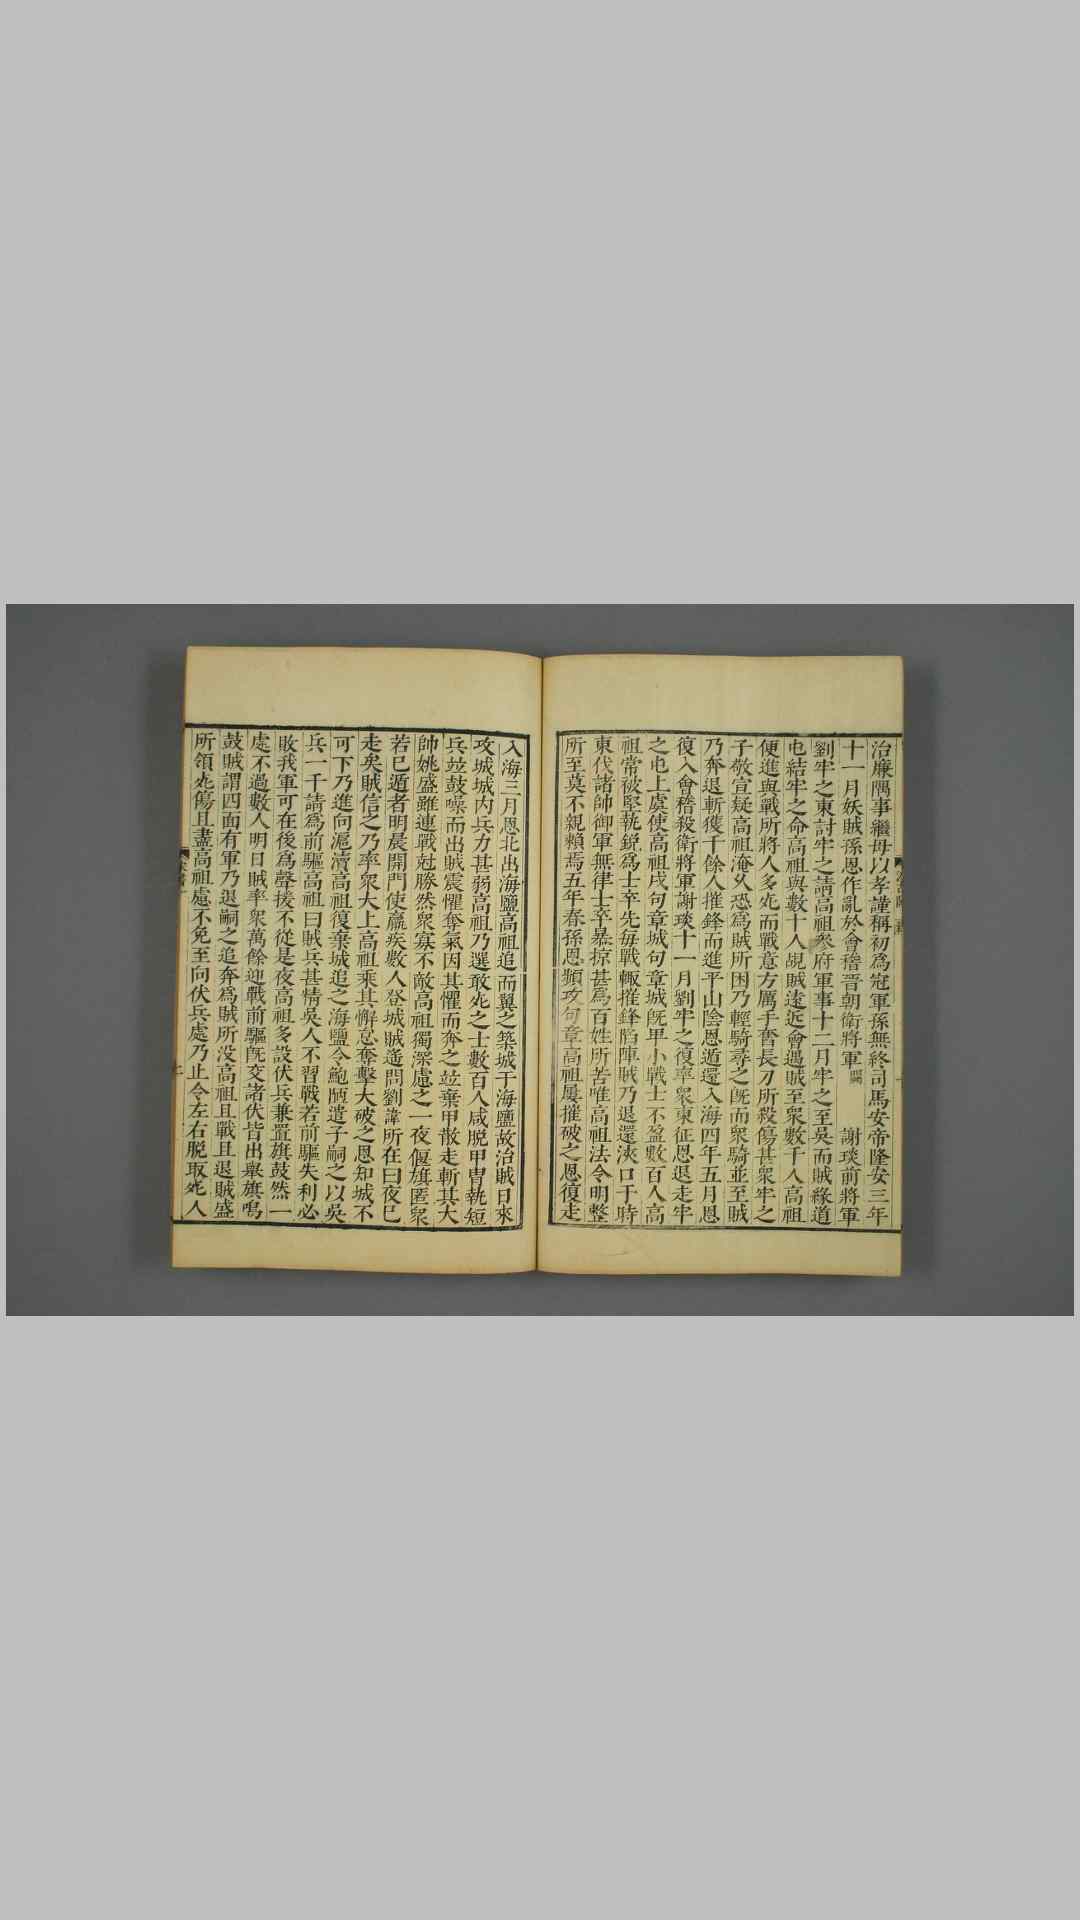 治廉隅事繼母以孝謹稱初爲冠軍孫無終司馬安帝隆安三年
十一月妖賊孫恩作亂於會稽晉朝衛將軍闕謝琰前將軍
劉牢之東討牢之請高祖參府軍事十二月牢之至吳而賊緣道
屯結牢之命高祖與數十人覘賊遠近會遇賊至衆數千人高祖
便進與戰所將人多死而戰意方厲手奮長刀所殺傷甚衆牢之
子敬宣疑高祖淹乆恐爲賊所困乃輕騎尋之旣而衆騎並至賊
乃奔退斬獲千餘人摧鋒而進平山陰恩遁還入海四年五月恩
復入會稽殺衛將軍謝琰十一月劉牢之復率衆東征恩退走牢
之屯上虞使高祖戍句章城句章城旣卑小戰士不盈數百人高
祖常被堅執銳爲士卒先每戰輙摧鋒陷陣賊乃退還浹口于時
東伐諸帥御軍無律士卒暴掠甚爲百姓所苦唯高祖法令明整
所至莫不親賴焉五年春孫恩頻攻句章高祖屢摧破之恩復走
入海三月恩北出海鹽高祖追而翼之築城于海鹽故治賊日來
攻城城内兵力甚弱高祖乃選敢死之士數百人咸脱甲冑執短
兵竝鼓噪而出賊震懼奪氣因其懼而奔之竝棄甲散走斬其大
帥姚盛雖連戰尅勝然衆寡不敵高祖獨深慮之一夜偃旗匿衆
若已遁者明晨開門使羸疾數人登城賊遥問劉諱所在曰夜已
走矣賊信之乃率衆大上高祖乘其懈怠奮擊大破之恩知城不
可下乃進向滬瀆高祖復棄城追之海鹽令鮑陋遣子嗣之以吳
兵一千請爲前驅高祖曰賊兵甚精吳人不習戰若前驅失利必
敗我軍可在後爲聲援不從是夜高祖多設伏兵兼置旗鼓然一
處不過數人明日賊率衆萬餘迎戰前驅旣交諸伏皆出舉旗鳴
鼓賊謂四面有軍乃退嗣之追奔爲賊所没高祖且戰且退賊盛
所領死傷且盡高祖慮不免至向伏兵處乃止令左右脱取死人